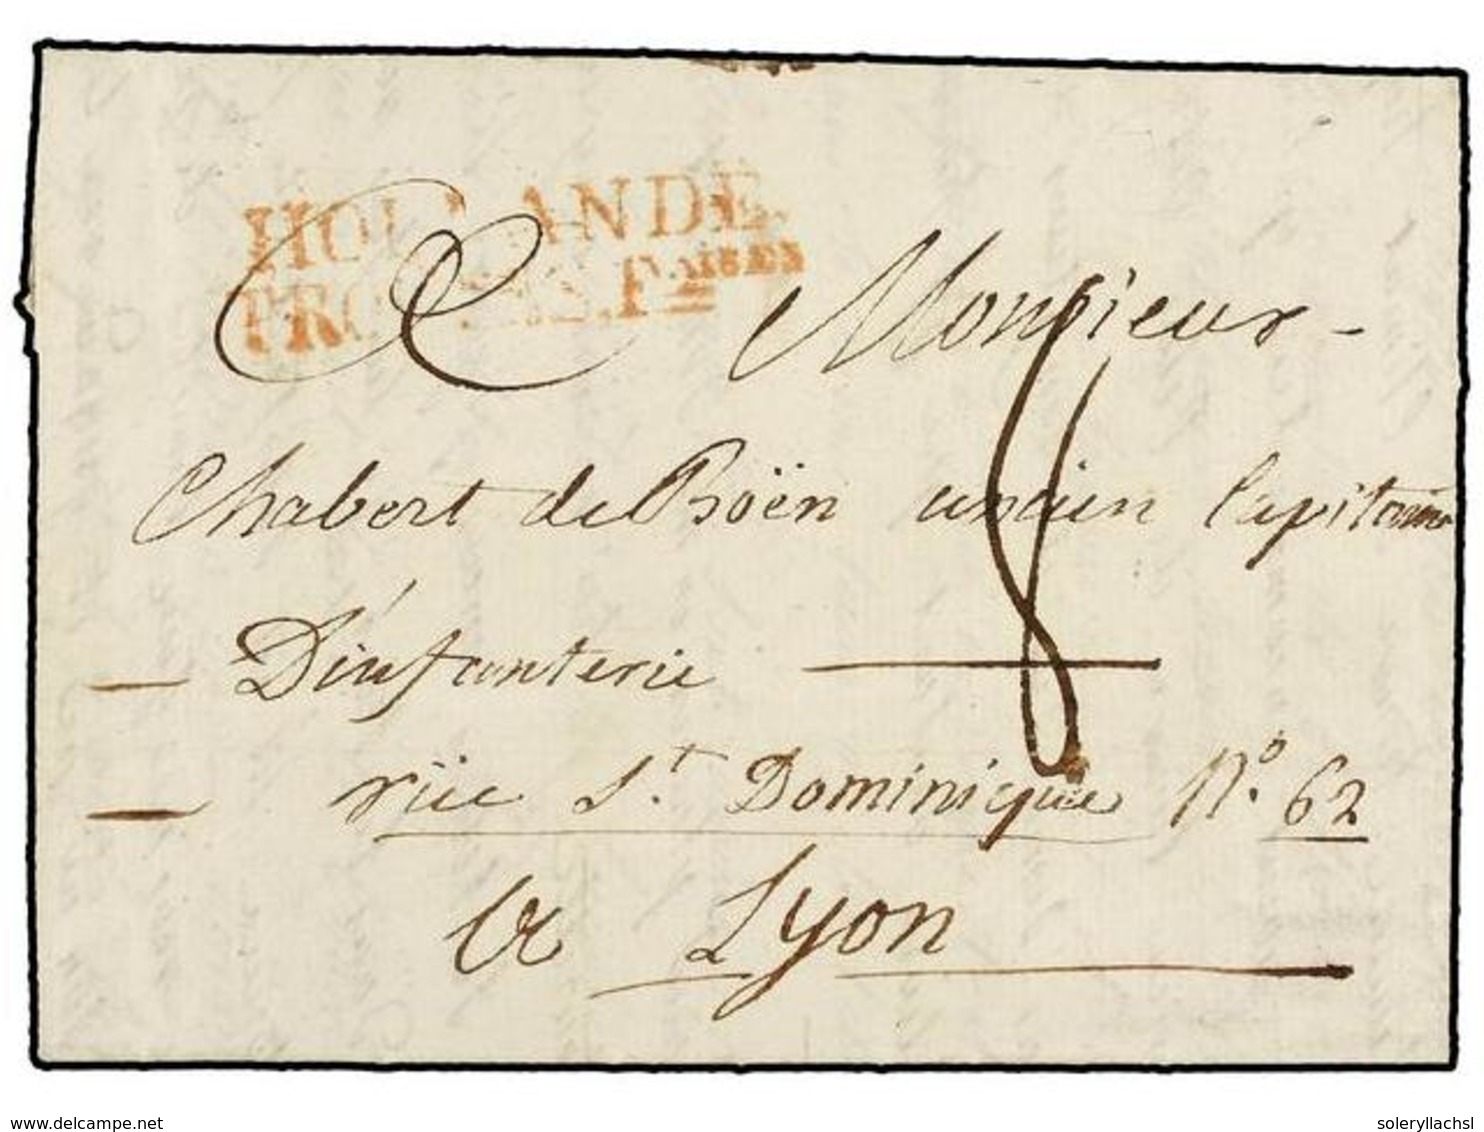 HOLLANDE
A Monsieur -
Chabert de Boën ancien Capitaine
D'infanterie
rüe St. Dominique No. 62
a Lyon
8
www.delcampe.net
soleryllachsl